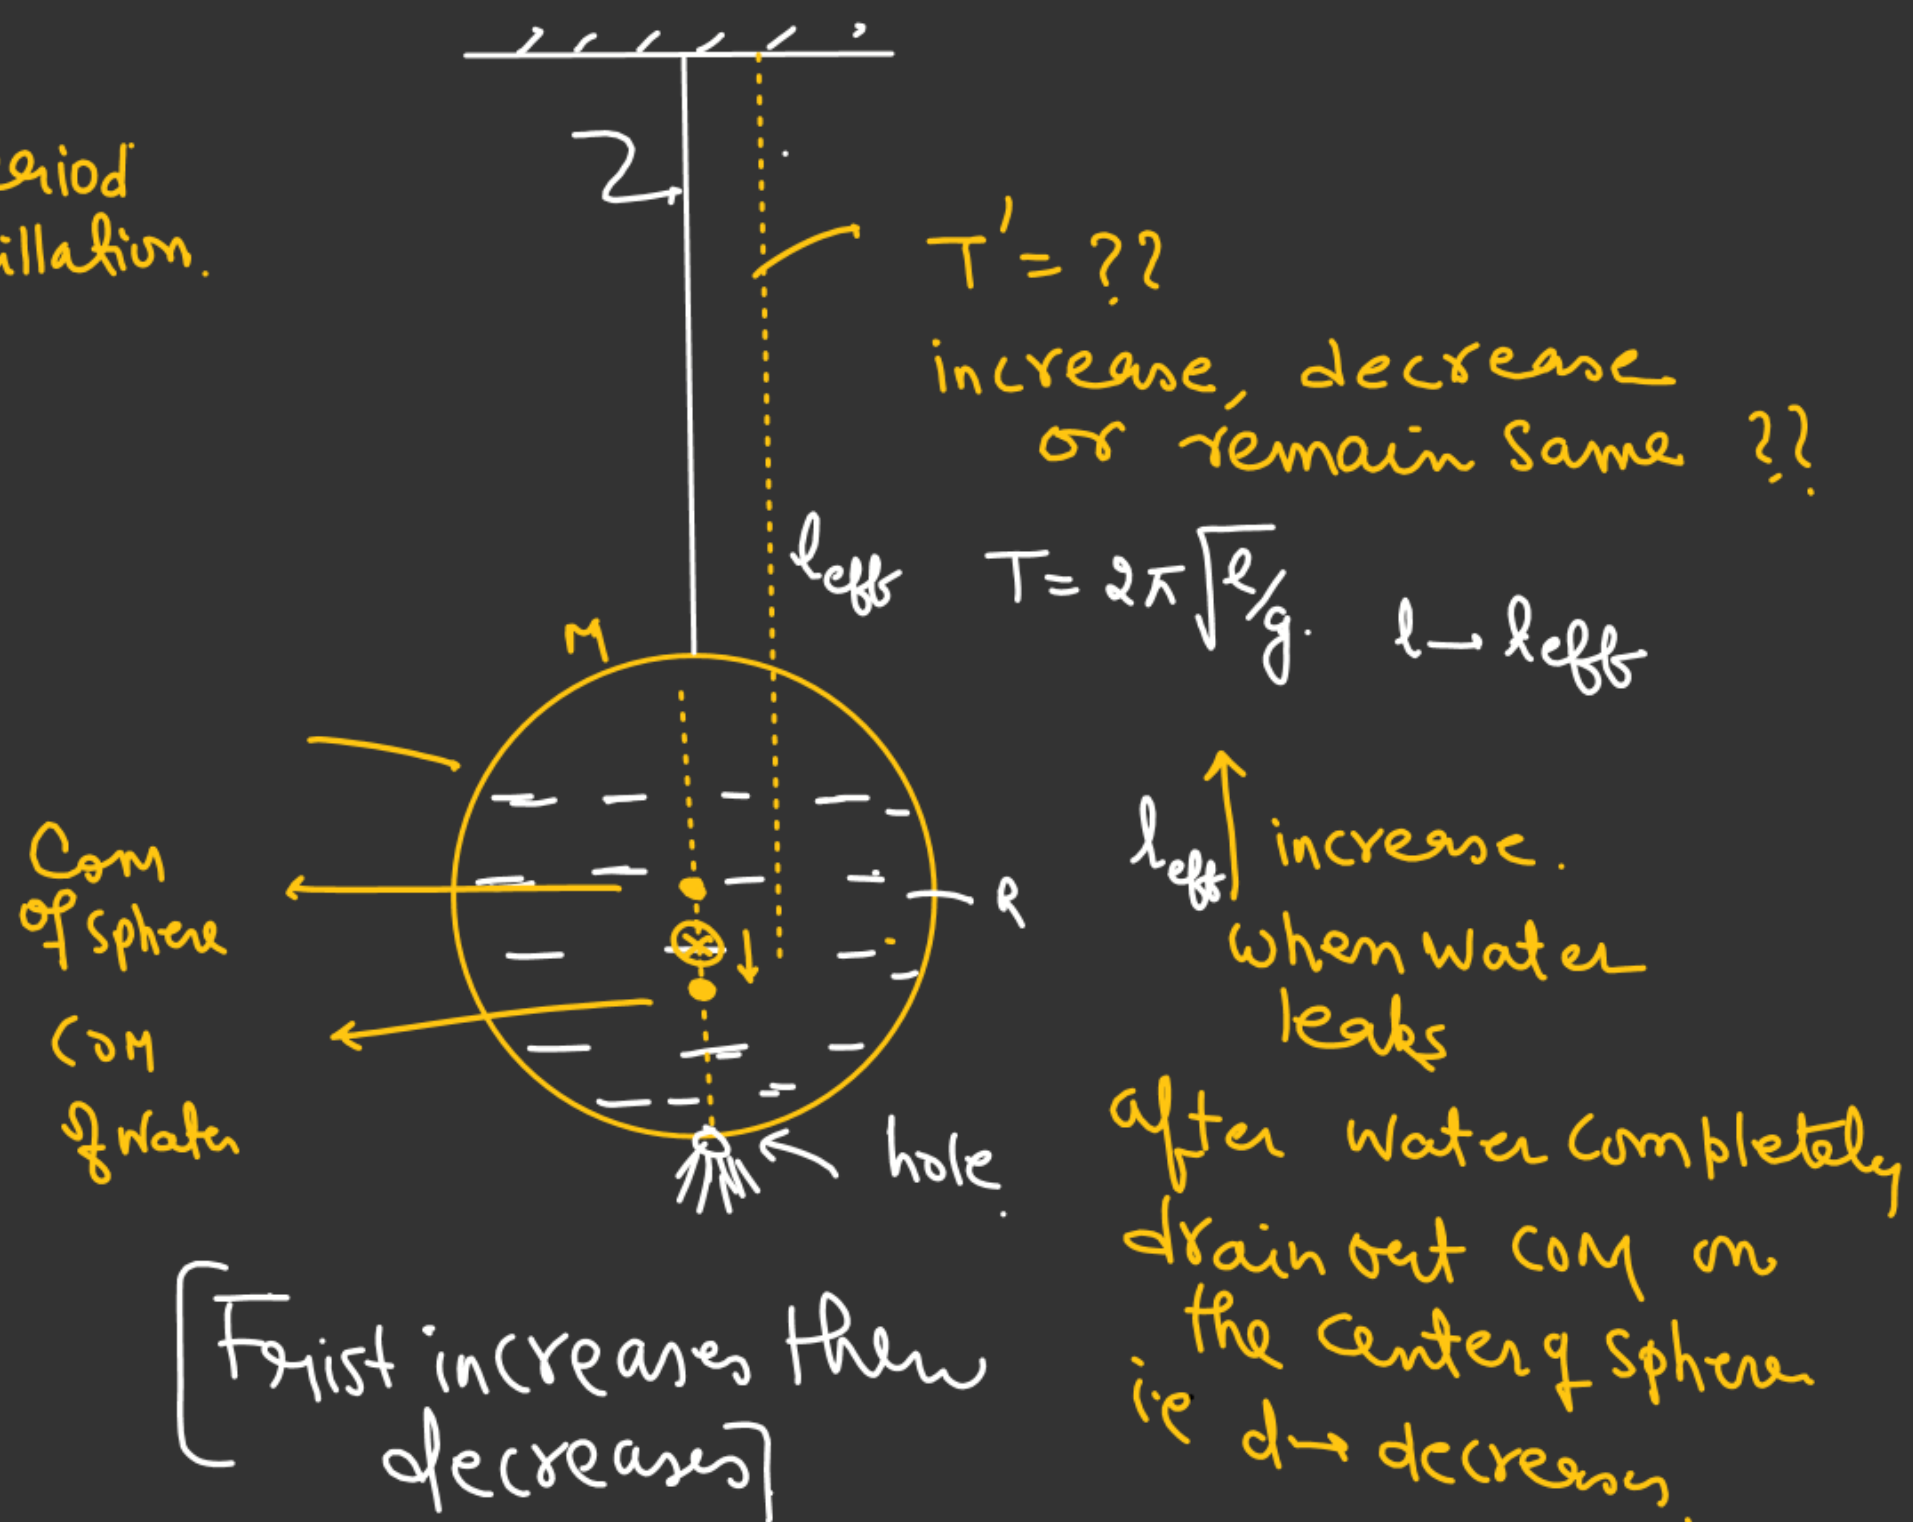 eriod
illation.
T' = ??
increase, decrease
or remain Same ??
leff
T = 2π√l/g.
l → leff
M
R
Com
of sphere
COM
of water
leff ↑ increase.
when water
leaks
hole.
after water completely
drain out COM on
the center of sphere
i.e d → decreases
[First increases then
decreases]